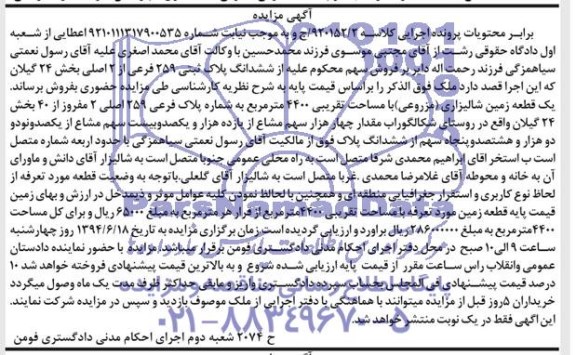 آگهی مزایده
برابر محتویات پرونده اجرایی کلاسه ۹۲۰۱۵۲/۲/ج و به موجب نیابت شماره ۹۲۱۰۱۱۱۳۱۷۹۰۰۵۳۵ اعطایی از شعبه
اول دادگاه حقوقی رشت از آقای مجتبی موسوی فرزند محمدحسین با وکالت آقای محمد اصغری علیه آقای رسول نعمتی
سیاهمزگی فرزند رحمت اله دایر بر فروش سهم محکوم علیه از ششدانگ پلاک ثبتی ۲۵۹ فرعی از ۲ اصلی بخش ۲۴ گیلان
که این اجرا قصد دارد ملک فوق الذکر را براساس قیمت پایه به شرح نظریه کارشناسی طی مزایده حضوری بفروش برساند.
یک قطعه زمین شالیزاری (مزروعی) با مساحت تقریبی ۴۴۰۰ مترمربع به شماره پلاک فرعی ۲۵۹ اصلی ۲ مفروز از ۴۰ بخش
۲۴ گیلان واقع در روستای شکالگوراب مقدار چهار هزار سهم مشاع از یازده هزار و یکصدوبیست سهم مشاع از یکصدونودو
دو هزار و هشتصدوپنجاه سهم از ششدانگ پلاک فوق از مالکیت آقای رسول نعمتی سیاهمزگی با حدود اربعه شمالا متصل
است ب استخر اقای ابراهیم محمدی شرقا متصل است به راه محلی عمومی جنوبا متصل است به شالیزار آقای دانش و ماورای
آن به خانه و محوطه آقای غلامرضا محمدی .غربا متصل است به شالیزار آقای گلعلی.باتوجه به وضعیت قطعه مورد تعرفه از
لحاظ نوع کاربری و استقرار جغرافیایی منطقه ای و همچنین با لحاظ نمودن کلیه عوامل موثر و ذیمدخل در ارزش و بهای زمین
قیمت پایه قطعه زمین مورد تعرفه با مساحت تقریبی ۴۴۰۰مترمربع از قرار هر مترمربع به مبلغ ۶۵۰۰۰ ریال و برای کل مساحت
۴۴۰۰مترمربع به مبلغ ۲۸۶۰۰۰۰۰۰ ریال براورد و ارزیابی گردیده است.زمان برگزاری مزایده به تاریخ ۱۳۹۴/۶/۱۸ روز چهارشنبه
ساعت ۹ الی۱۰ صبح در محل دفتر اجرای احکام مدنی دادگستری فومن برقرار میباشد.مزایده با حضور نماینده دادستان
عمومی وانقلاب راس ساعت مقرر از قیمت پایه ارزیابی شده شروع و به بالاترین قیمت پیشنهادی فروخته خواهد شد ۱۰
درصد قیمت پیشنهادی فی المجلس بحساب سپرده دادگستری واریز و مابقی حداکثر ظرف مدت یک ماه وصول میگردد
خریداران ۵روز قبل از مزایده میتوانند با هماهنگی با دفتر اجرایی از ملک موصوف بازدید و سپس در مزایده شرکت نمایند.
این آگهی فقط در یک نوبت منتشر خواهد شد.
ح ۲۰۷۴ شعبه دوم اجرای احکام مدنی دادگستری فومن
۰۲۱-۸۸۳۴۹۶۷۰-۵